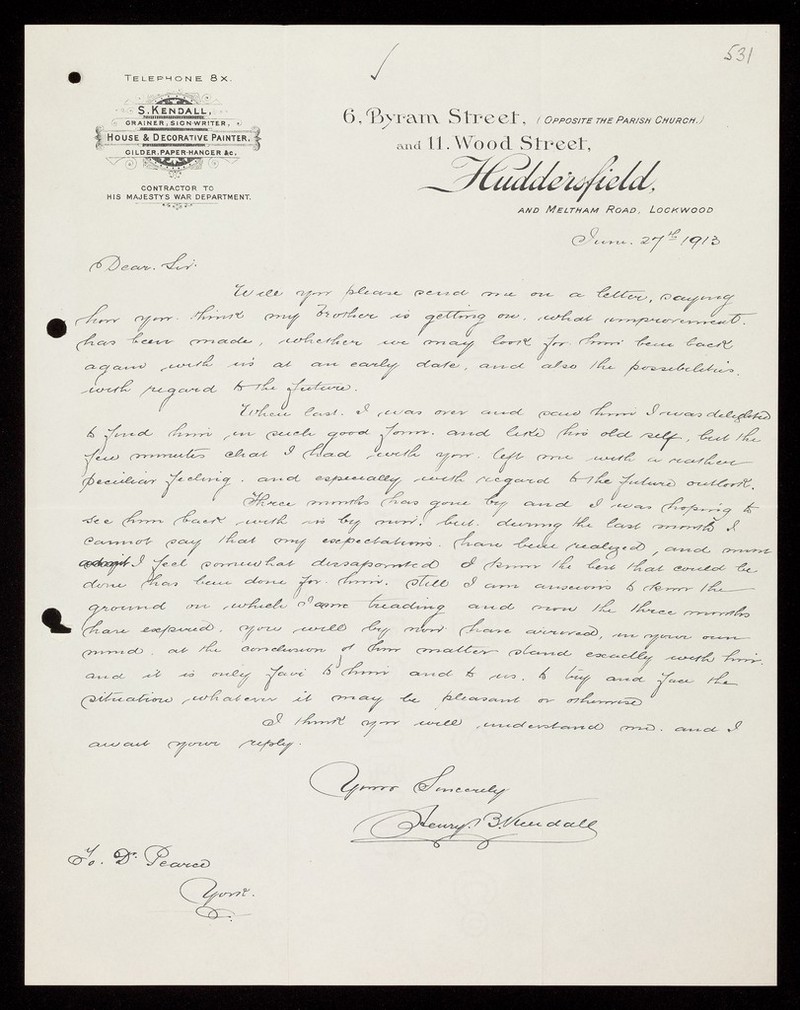 531
TELEPHONE 8X.
S. KENDALL,
GRAINER, SIGN-WRITER,
HOUSE & DECORATIVE PAINTER,
GILDER, PAPER-HANGER &c.
CONTRACTOR TO
HIS MAJESTYS WAR DEPARTMENT.
6, Byram Street, (OPPOSITE THE PARISH CHURCH.)
and 11. Wood Street,
Huddersfield,
AND MELTHAM ROAD, LOCKWOOD
June. 27th 1913
Dear. Sir.
Will you please send me on a letter, saying
how you. think my brother is getting on. what improvement.
has been made, whether we may look for him been back
again with us at an early date, and also the possibilities.
with regard to the future.
When last. I was over and saw him I was delighted
to find him in such good form. and like his old self, but the
few minutes chat I had with you. left me with a rather
peculiar feeling. and especially with regard to the future outlook.
Three months has gone by and I was hoping to
see him back with us by now. but. during the last month I
cannot say that my expectations. have been realized, and must
admit I feel somewhat dissapointed I know the best that could be
done has been done for him. still I am anxious to know the
ground on which I am treading and now the three months
have expired. you will by now have arrived, in your own
mind. at the conclusion of how matter stand exactly with him.
and it is only fair to him and to us. to try and face the
situation whatever it may be pleasant or otherwise
I think you will understand me. and I
await your reply.
Yours Sincerely
Henry. B. Kendall
To. Dr. Pearce
York.